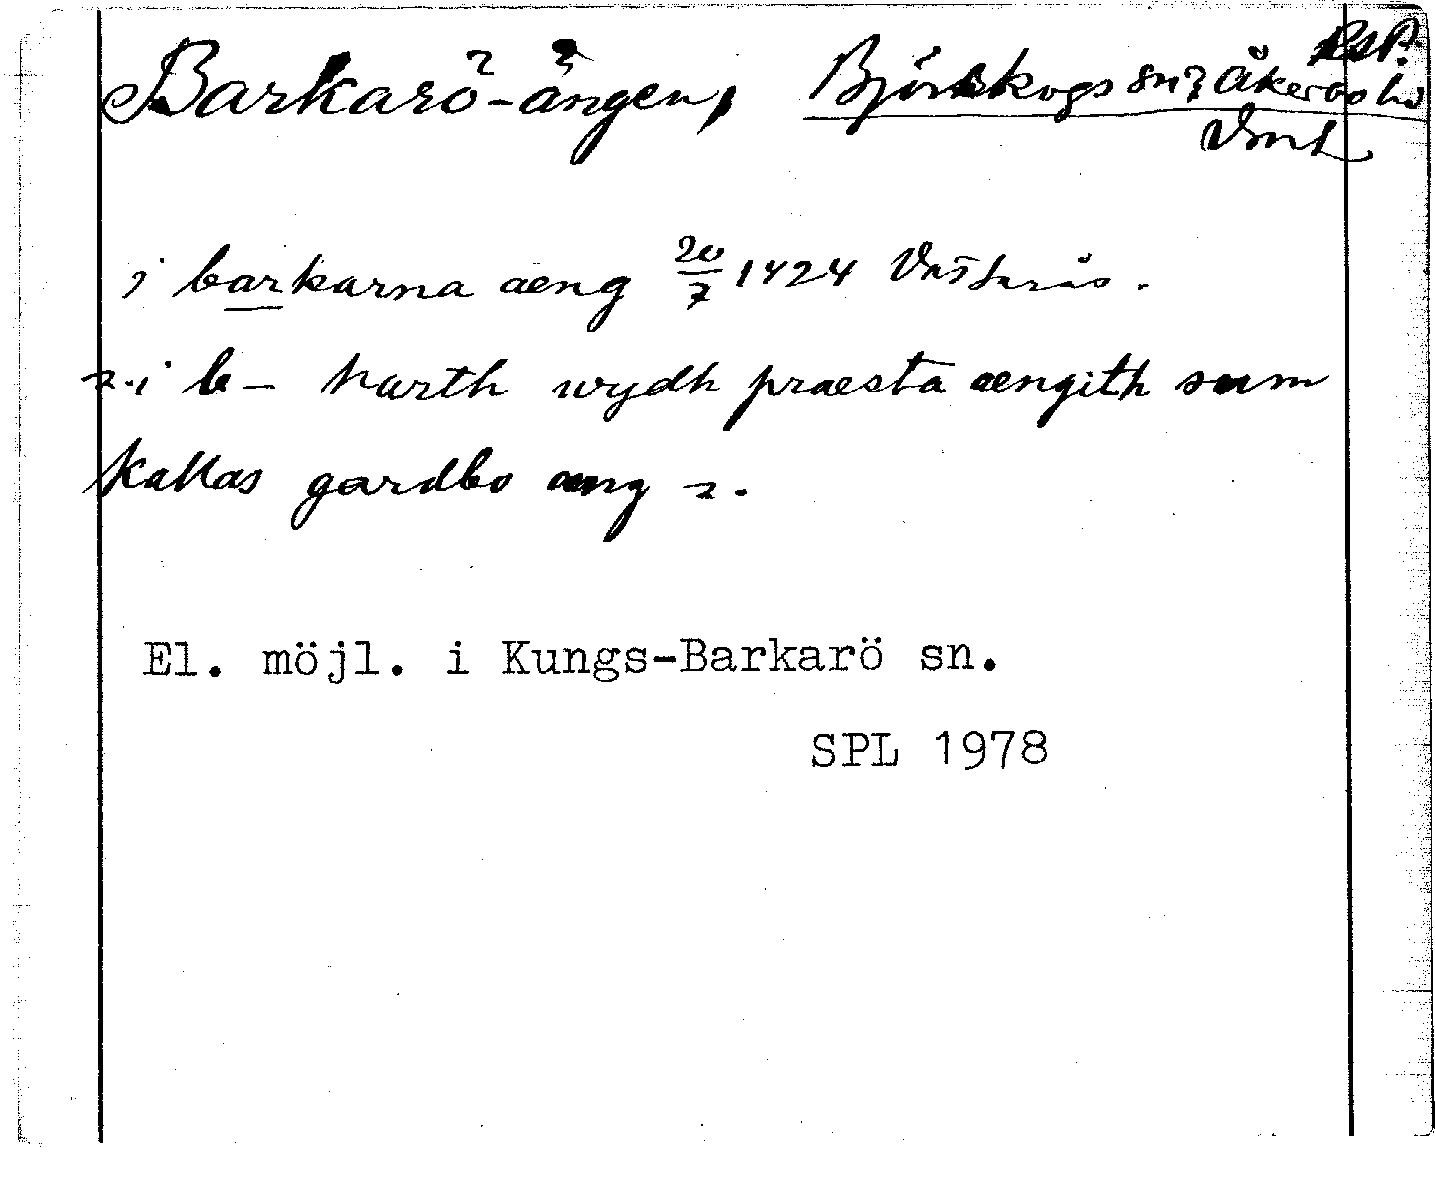 RsP.
Barkarö-ängen, Björskogs sn, Åkerbo hd
Vml
i barkarna aeng 20/7 1424 Västerås.
i b- harth wydh praesta aengith sum
kallas gardbo aeng
El. möjl. i Kungs-Barkarö sn.
SPL 1978